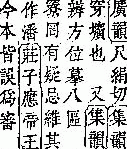 廣韻尺絹切集韻
穿壙也又集韻
辨方位墓八區
罔有疑惟其
作潘莊子應帝王
今本皆誤爲審